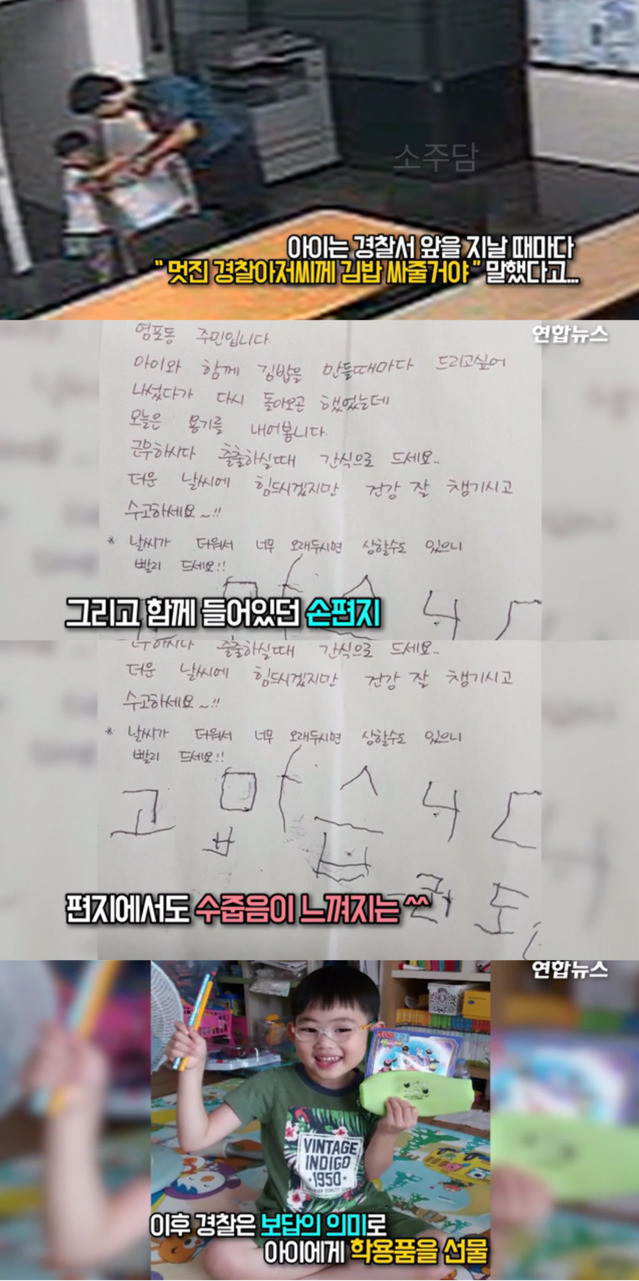 소주담
아이는 경찰서 앞을 지날 때마다
" 멋진 경찰아저씨께 김밥 싸줄거야 " 말했다고...
연합뉴스
염포동 주민입니다.
아이와 함께 김밥을 만들때마다 드리고싶어
나섰다가 다시 돌아오곤 했었는데
오늘은 용기를 내어봅니다.
근무하시다 출출하실때 간식으로 드세요..
더운 날씨에 힘드시겠지만 건강 잘 챙기시고
수고하세요~!!
* 날씨가 더워서 너무 오래두시면 상할수도 있으니
빨리 드세요!!
그리고 함께 들어있던 손편지
근무하시다 출출하실때 간식으로 드세요..
더운 날씨에 힘드시겠지만 건강 잘 챙기시고
수고하세요~!!
* 날씨가 더워서 너무 오래두시면 상할수도 있으니
빨리 드세요!!
고맙습니다
편지에서도 수줍음이 느껴지는 ^^
연합뉴스
VINTAGE
INDIGO
1950
이후 경찰은 보답의 의미로
아이에게 학용품을 선물